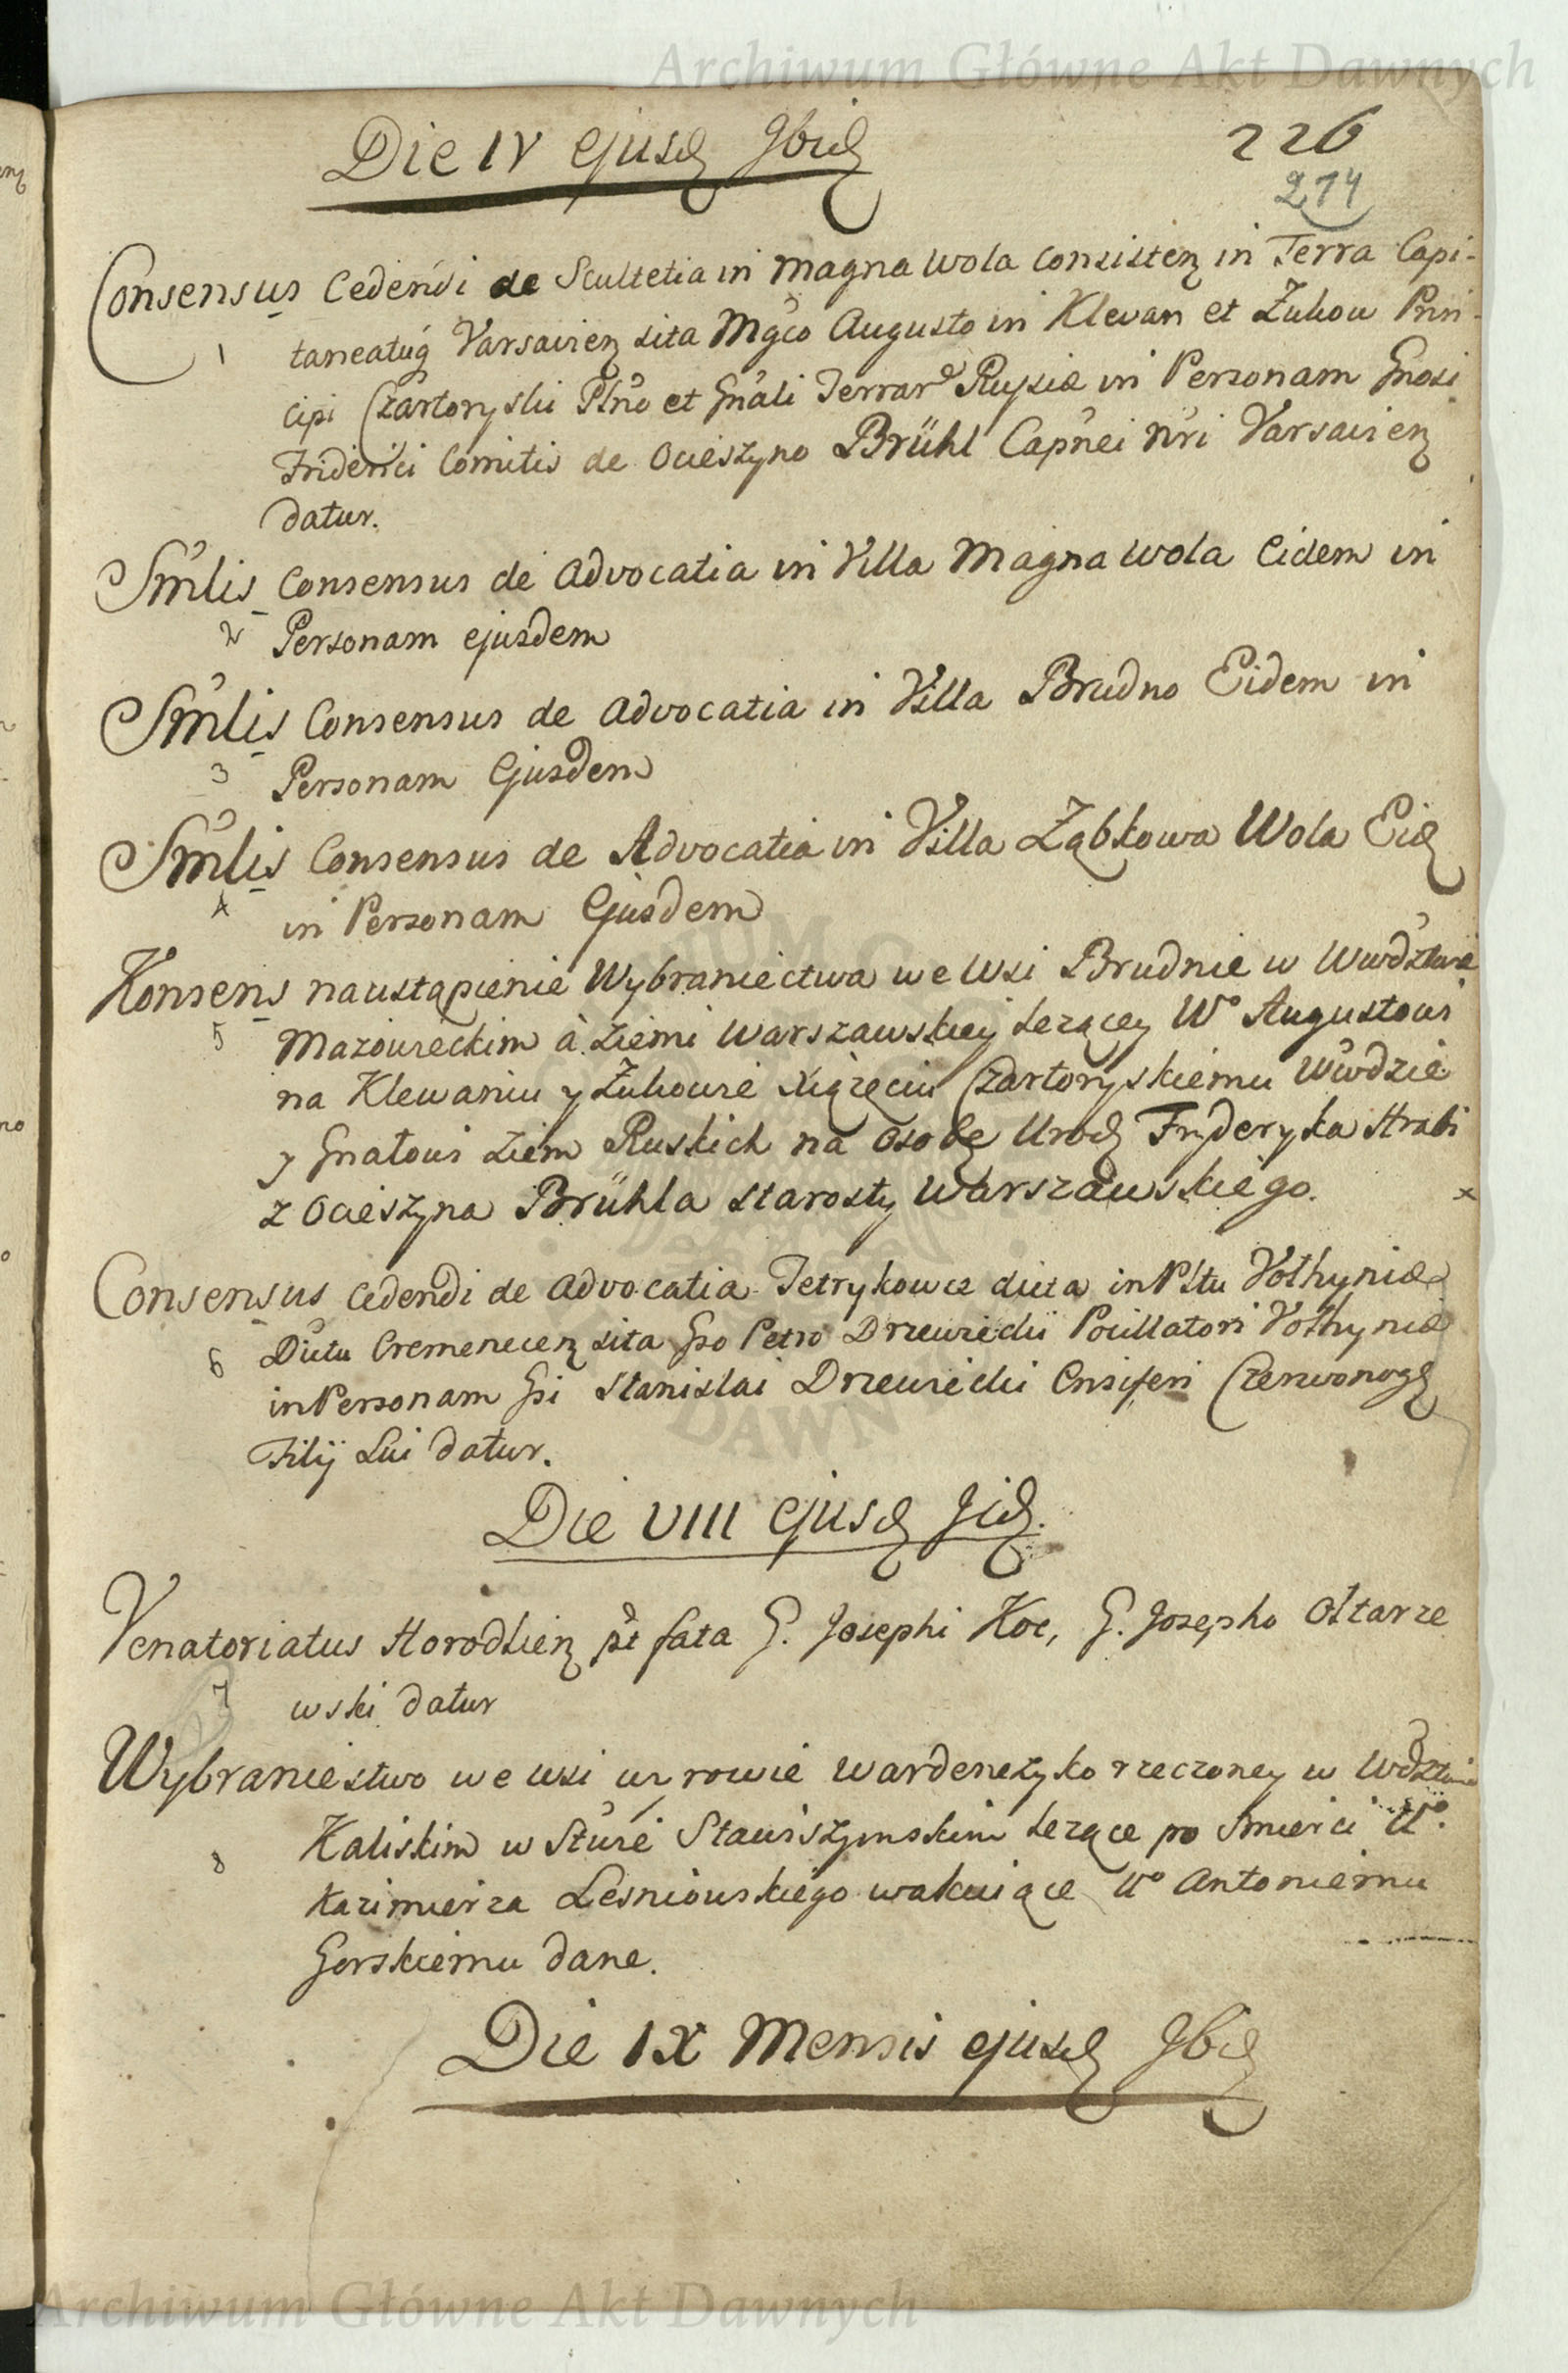 Archiwum Główne Akt Dawnych
226
Die IV ejusd 9bid
214
Consensus cedendi de Scultetia in Magna Wola consisten in Terra Capi-
1 taneatuq Varsavien sita Mgco Augusto in Klevan et Żukow Prin-
cipi Czartoryski Plno et Gnali Terrar Russiæ in Personam Gnosi
Friderici Comitis de Ocieszyno Brühl Capnei nri Varsavien
datur.
Smlis Consensus de Advocatia in Villa Magna Wola Eidem in
2 Personam ejusdem
Smlis Consensus de Advocatia in Villa Brudno Eidem in
3 Personam Ejusdem
Smlis Consensus de Advocatia in Villa Ząbkowa Wola Eid
4 in Personam Ejusdem
Konsens na ustąpienie Wybraniectwa we Wsi Brudnie w Wwdztwie
5 Mazowieckim á Ziemi Warszawskiey leżącey W° Augustowi
na Klewaniu y Żukowie Xiążęciu Czartoryskiemu Wwdzie
y Gnałowi Ziem Ruskich na osobę Urod Fryderyka Hrabi
z Ocieszyna Brühla Starosty Warszawskiego.
Consensus cedendi de Advocatia Tetrykowce dicta in Pltu Volhyniæ
6 Dictu Cremenecen sita Gso Petro Drzewiecki Pocillatori Volhyniæ
in Personam Gsi Stanislai Drzewiecki Ensiferi Czerwonogd
Filij Sui datur.
Die VIII ejusd 9id.
Venatoriatus Horodlien pt fata G. Josephi Koc, G. Josepho Ołtarze
7 wski datur
Wybraniestwo we wsi uyrowie Wardenszyko rzeczoney w Wdztwie
8 Kaliskim w Stwie Stawiszynskim leżące po Smierci W°.
Kazimierza Lesniowskiego wakuiące W° Antoniemu
Gorskiemu dane.
Die IX Mensis ejusd 9bid
Archiwum Główne Akt Dawnych